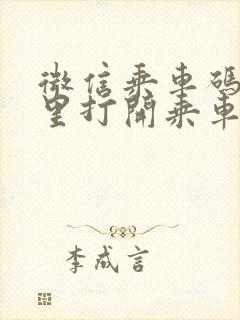 微信乘車碼
里打開乘車
李成言